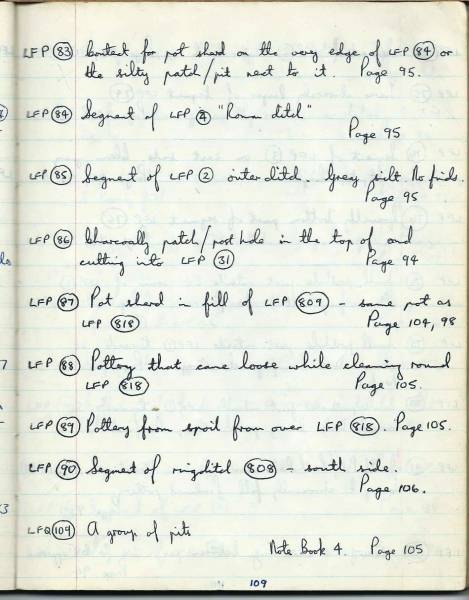 LFP 83 Context for pot shard on the very edge of LFP 84 or
the silty patch/pit next to it. Page 95.
LFP 84 Segment of LFP 4 "Roman ditch"
Page 95
LFP 85 Segment of LFP 2 outer ditch. Grey silt. No finds.
Page 95
LFP 86 Charcoally patch/post hole in the top of and
cutting into LFP 31 Page 94
LFP 87 Pot shard in fill of LFP 809 - same pot as
LFP 818 Page 104, 98
LFP 88 Pottery that came loose while cleaning round
LFP 818 Page 105.
LFP 89 Pottery from spoil from over LFP 818. Page 105.
LFP 90 Segment of ringditch 808 - south side.
Page 106.
LFQ 109 A group of pits
Note Book 4 Page 105
109